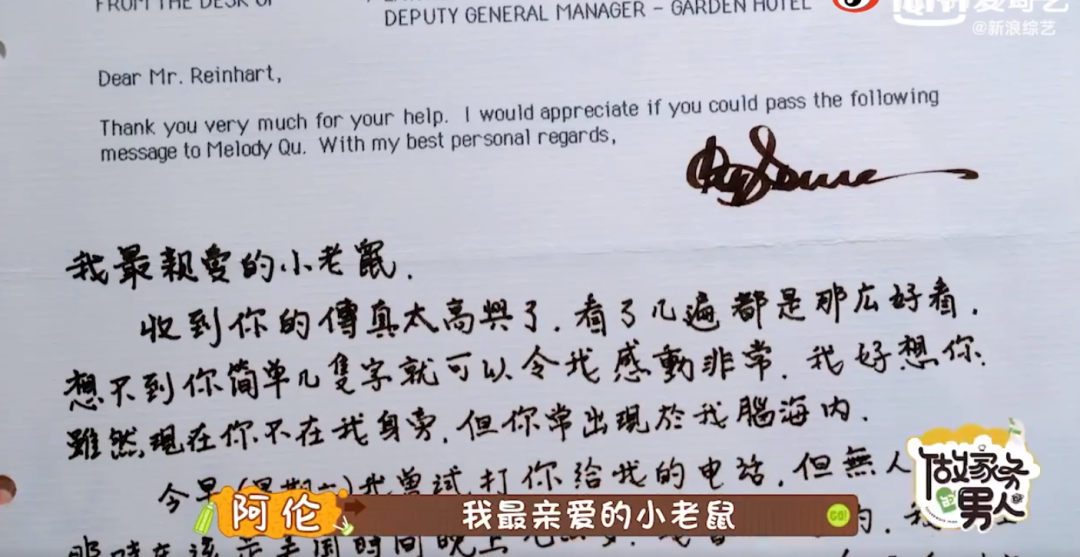 FROM THE DESK OF
DEPUTY GENERAL MANAGER - GARDEN HOTEL
@新浪综艺
Dear Mr. Reinhart,
Thank you very much for your help. I would appreciate if you could pass the following
message to Melody Qu. With my best personal regards,
我最親愛的小老鼠.
收到你的傳真太高興了.看了几遍都是那広好看.
想不到你简单几隻字就可以令我感動非常.我好想你.
雖然現在你不在我身旁.但你常出現於我腦海内.
今早(星期六)我曾試打你给我的电话.但無人
做家务
男人
阿伦
我最亲爱的小老鼠
GO!